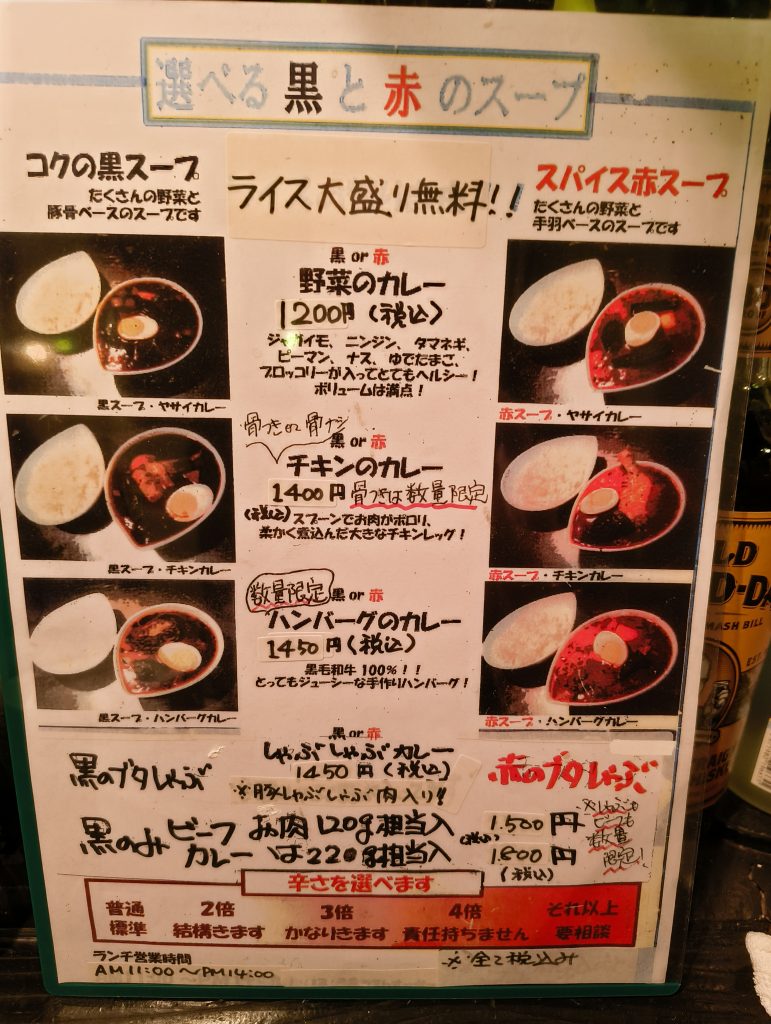 選べる黒と赤のスープ
コクの黒スープ
たくさんの野菜と
豚骨ベースのスープです
ライス大盛り無料!!
スパイス赤スープ
たくさんの野菜と
手羽ベースのスープです
黒 or 赤
野菜のカレー
1200円(税込)
ジャガイモ、ニンジン、タマネギ、
ピーマン、ナス、ゆでたまご、
ブロッコリーが入ってとてもヘルシー!
ボリュームは満点!
黒スープ・ヤサイカレー
赤スープ・ヤサイカレー
骨つき or 骨ナシ
黒 or 赤
チキンのカレー
1400円 骨つきは数量限定
(税込)スプーンでお肉がポロリ、
柔かく煮込んだ大きなチキンレッグ!
黒スープ・チキンカレー
赤スープ・チキンカレー
数量限定 黒 or 赤
ハンバーグのカレー
1450円(税込)
黒毛和牛100%!!
とってもジューシーな手作りハンバーグ!
黒スープ・ハンバーグカレー
赤スープ・ハンバーグカレー
黒 or 赤
しゃぶしゃぶカレー
1450円(税込)
※豚しゃぶしゃぶ肉入り!!
黒のブタしゃぶ
赤のブタしゃぶ
黒のみ ビーフカレー
お肉120g相当入 1.500円
は220g相当入 (税込) 1.800円
(税込)
※しゃぶも
ビーフも
数量
限定!
辛さを選べます
普通 2倍 3倍 4倍 それ以上
標準 結構きます かなりきます 責任持ちません 要相談
ランチ営業時間
AM11:00~PM14:00
※全て税込み
OLD
SMASH BILL
EST.